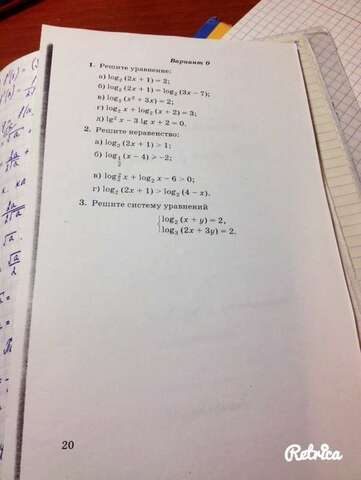 Вариант 6
1. Решите уравнение:
а) log₂ (2x + 1) = 2;
б) log₂ (2x + 1) = log₂ (3x − 7);
в) log₂ (x² + 3x) = 2;
г) log₂ x + log₂ (x + 2) = 3;
д) lg² x − 3 lg x + 2 = 0.
2. Решите неравенство:
а) log₂ (2x + 1) > 1;
б) log½ (x − 4) ⩾ −2;
в) log₂² x + log₂ x − 6 > 0;
г) log₂ (2x + 1) > log₂ (4 − x).
3. Решите систему уравнений
log₂ (x + y) = 2,
log₃ (2x + 3y) = 2.
20
Retrica